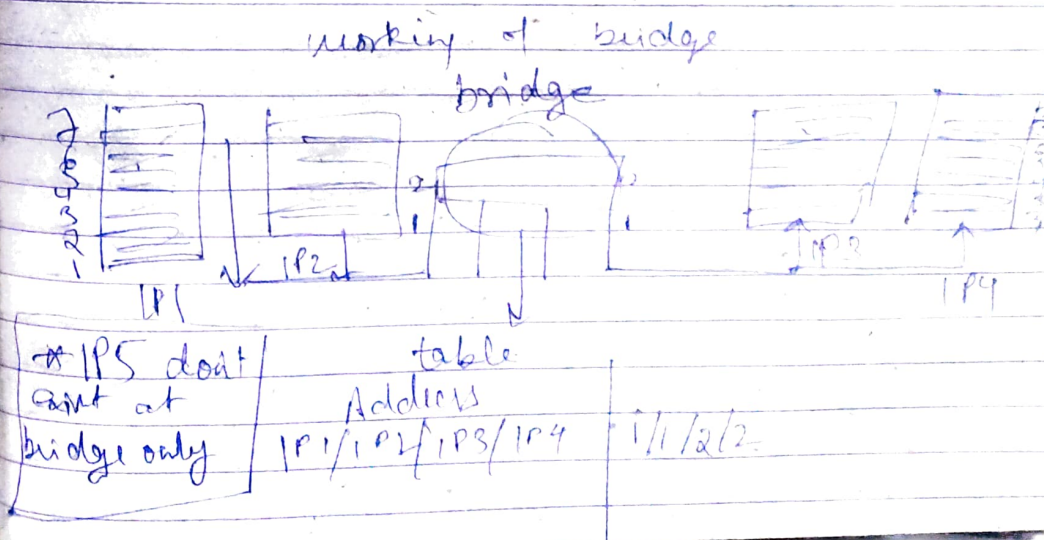 working of bridge
bridge
7
6
5
4
3
2
1
2
1
2
1
IP1
IP2
IP3
IP4
* IP5 don't
exist at
bridge only
table
Address
IP1/IP2/IP3/IP4
1/1/2/2